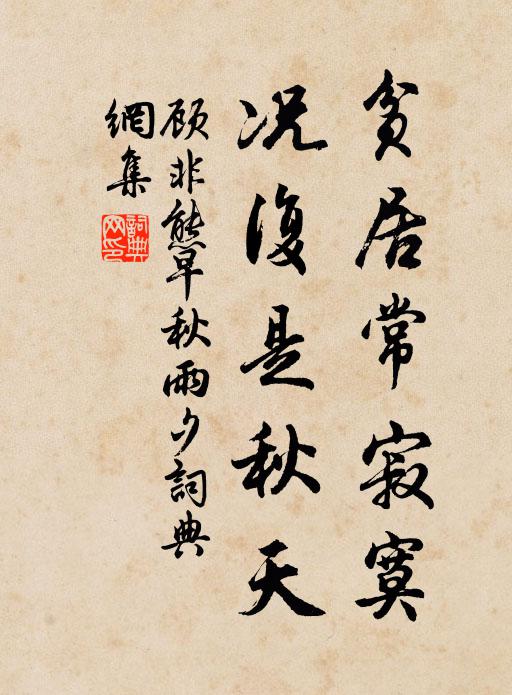 貧居常寂寞
况復是秋天
顧非熊早秋雨夕詞典
網集
詞典
网印